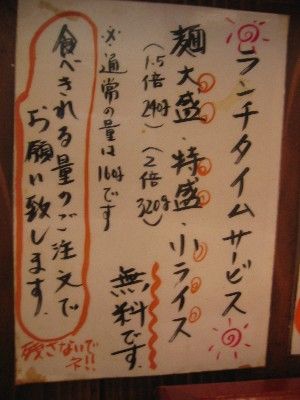 ランチタイムサービス
麺大盛・特盛・小ライス
(1.5倍240g) (2倍320g)
無料です。
※通常の量は160gです
食べきれる量のご注文で
お願い致します。
残さないでネ!!